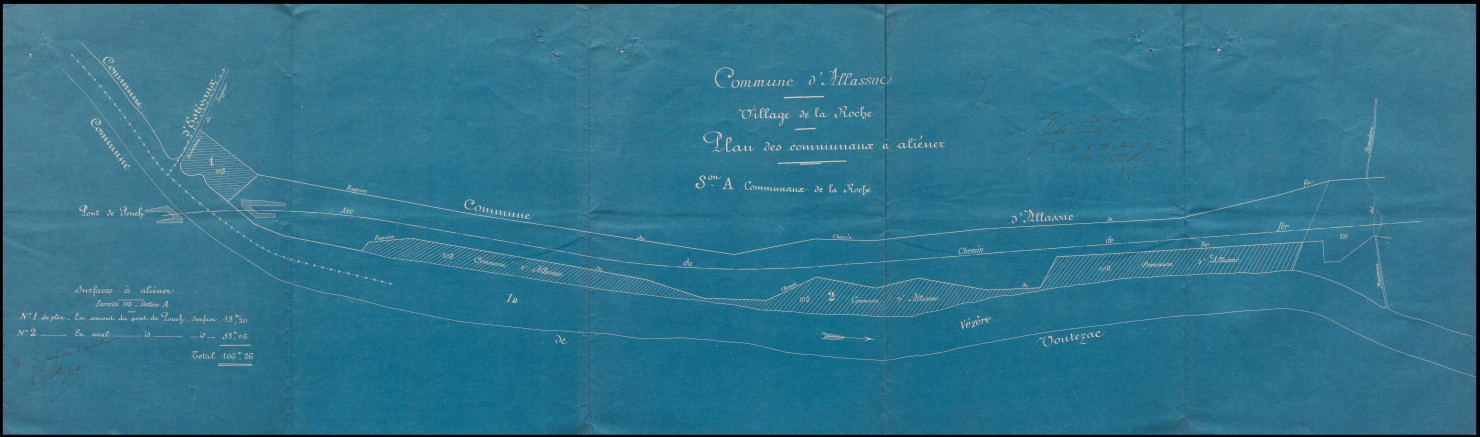 Commune d'Allassac
Village de la Roche
Plan des communaux à aliéner
S.on A Communaux de la Roche
Commune
Commune
d'Estivaux
1
103
Pont de Pouch
Emprise
Commune
du
Chemin
d'Allassac
de
fer
Axe
du
Chemin
de
fer
Emprise
103 Commune d'Allassac
du
Chemin
2
103 Commune d'Allassac
de
fer
103 Commune d'Allassac
la
Vézère
de
Voutezac
Surfaces à aliéner
Parcelle 103 - Section A
N° 1 du plan - En amont du pont de Pouch, surface
N° 2 - En aval - id - id -
Total 106a,26